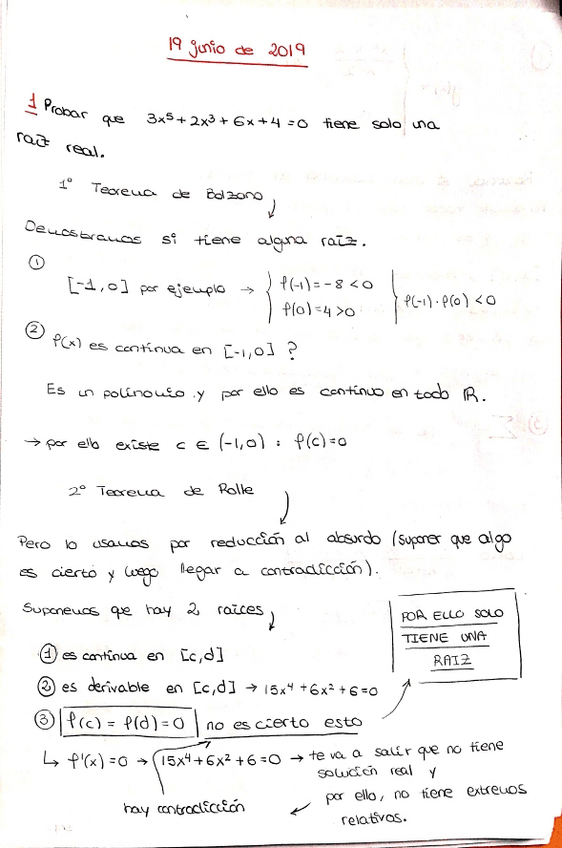 19 junio de 2019
1 Probar que 3x⁵+2x³+6x+4=0 tiene solo una
raíz real.
1º Teorema de Bolzano
Demostramos si tiene alguna raíz.
① [-1,0] por ejemplo → { f(-1)=-8<0
f(0)=4>0 } f(-1)·f(0)<0
② f(x) es continua en [-1,0] ?
Es un polinomio y por ello es continuo en todo ℝ.
→ por ello existe c ∈ (-1,0) : f(c)=0
2º Teorema de Rolle
Pero lo usamos por reducción al absurdo (suponer que algo
es cierto y luego llegar a contradicción).
Suponemos que hay 2 raíces
① es continua en [c,d]
② es derivable en [c,d] → 15x⁴+6x²+6=0
③ f(c) = f(d)=0 no es cierto esto
POR ELLO SOLO
TIENE UNA
RAIZ
↳ f'(x)=0 → 15x⁴+6x²+6=0 → te va a salir que no tiene
solución real y
por ello, no tiene extremos
relativos.
hay contradicción